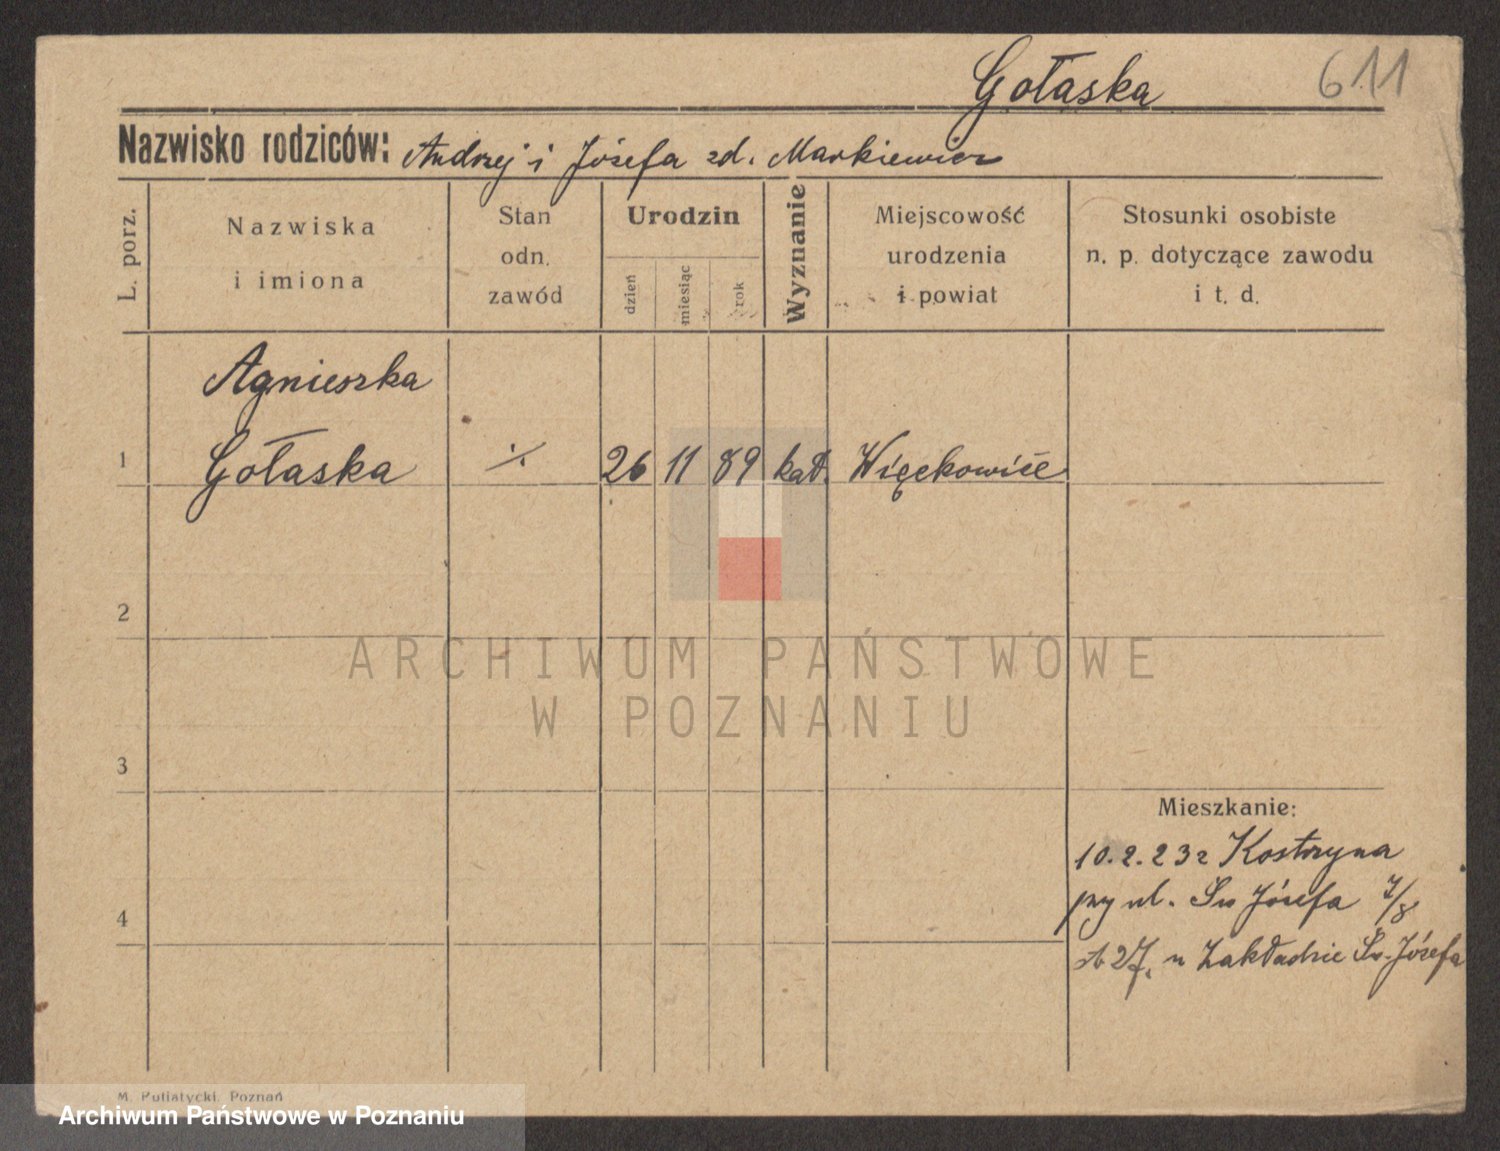 Gołaska 611
Nazwisko rodziców: Andrzej i Józefa zd. Markiewicz
L. porz.
Nazwiska
i imiona
Stan
odn.
zawód
Urodzin
dzień
miesiąc
rok
Wyznanie
Miejscowość
urodzenia
i powiat
Stosunki osobiste
n. p. dotyczące zawodu
i t. d.
Agnieszka
1 Gołaska ·/· 26 11 89 kat. Więckowice
2
ARCHIWUM PAŃSTWOWE
W POZNANIU
3
Mieszkanie:
10.2.23 z Kostrzyna
przy ul. Św Józefa 7/8
4
27. w Zakładzie Św. Józefa
M. Putiatycki, Poznań
Archiwum Państwowe w Poznaniu